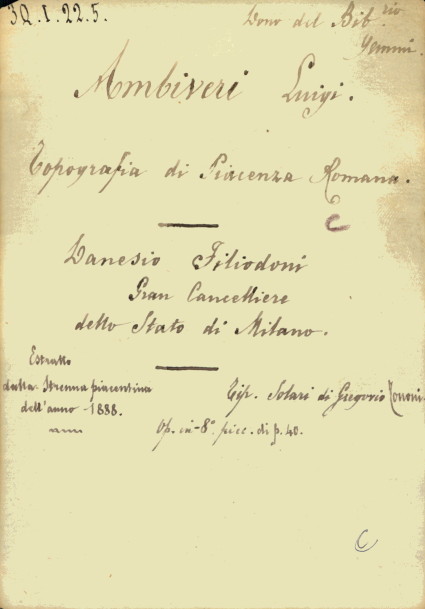 3Q.I.22.5.
Dono del Bib.rio
Ambiveri Luigi.
Topografia di Piacenza Romana.
C
Danesio Filiodoni
Gran Cancelliere
dello Stato di Milano.
Estratto
dalla Strenna piacentina
dell'anno 1888.
Tip. Solari di Gregorio Tononi.
Op. in-8° picc. di p. 40.
C